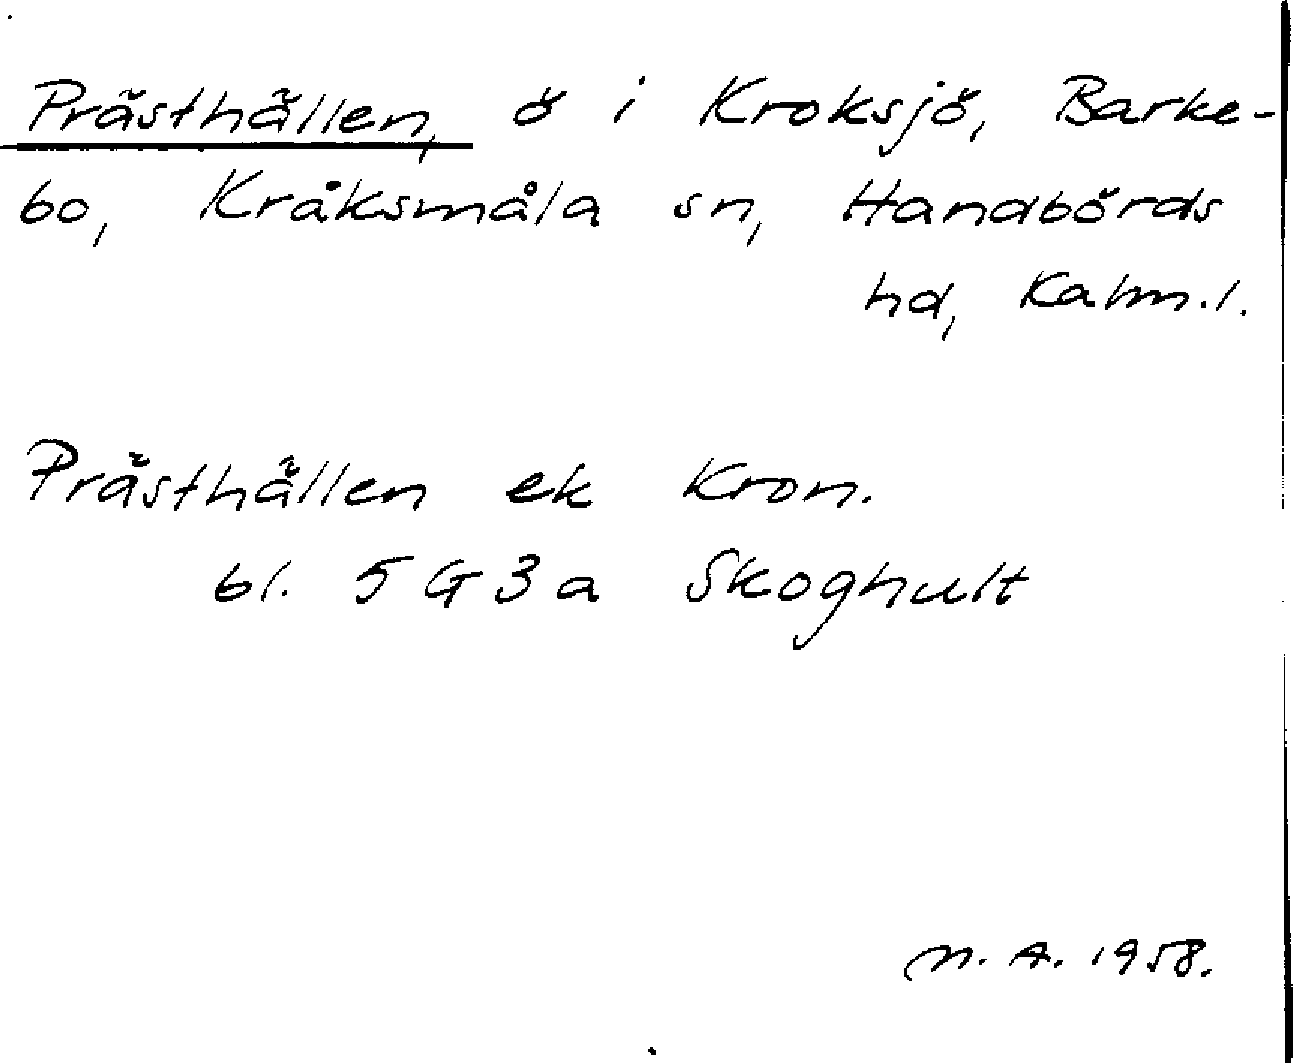 Prästhällen, ö i Kroksjö, Barke-
bo, Kråksmåla sn, Handbörds
hd, Kalm.l.
Prästhällen ek Kron.
bl. 5 G 3 a Skoghult
M. A. 1958.